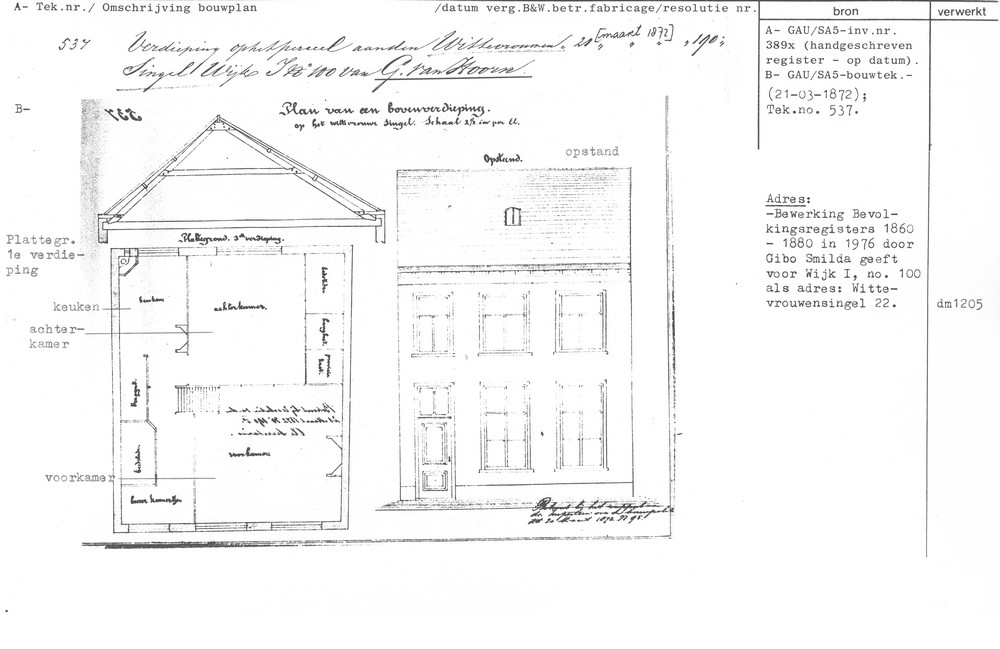 A- Tek.nr./ Omschrijving bouwplan /datum verg.B&W.betr.fabricage/resolutie nr.
bron
verwerkt
537 Verdieping op het perceel aan den Wittevrouwen 20 [maart 1872] 190
Singel Wijk I No 100 van G. van Hoorn.
A- GAU/SA5-inv.nr.
389x (handgeschreven
register - op datum).
B- GAU/SA5-bouwtek.-
(21-03-1872);
Tek.no. 537.
B-
537
Plan van een bovenverdieping.
op het wittevrouwe singel. Schaal 2½ in per El.
Opstand.
opstand
Adres:
-Bewerking Bevol-
kingsregisters 1860
- 1880 in 1976 door
Gibo Smilda geeft
voor Wijk I, no. 100
als adres: Witte-
vrouwensingel 22.
dm1205
Plattegr.
1e verdie-
ping
Plattegrond. 1ste verdieping.
keuken
keuken
achter-
kamer
achterkamer.
bedstede
provisie
kast
trapgat
bedstede
voorkamer
voorkamer